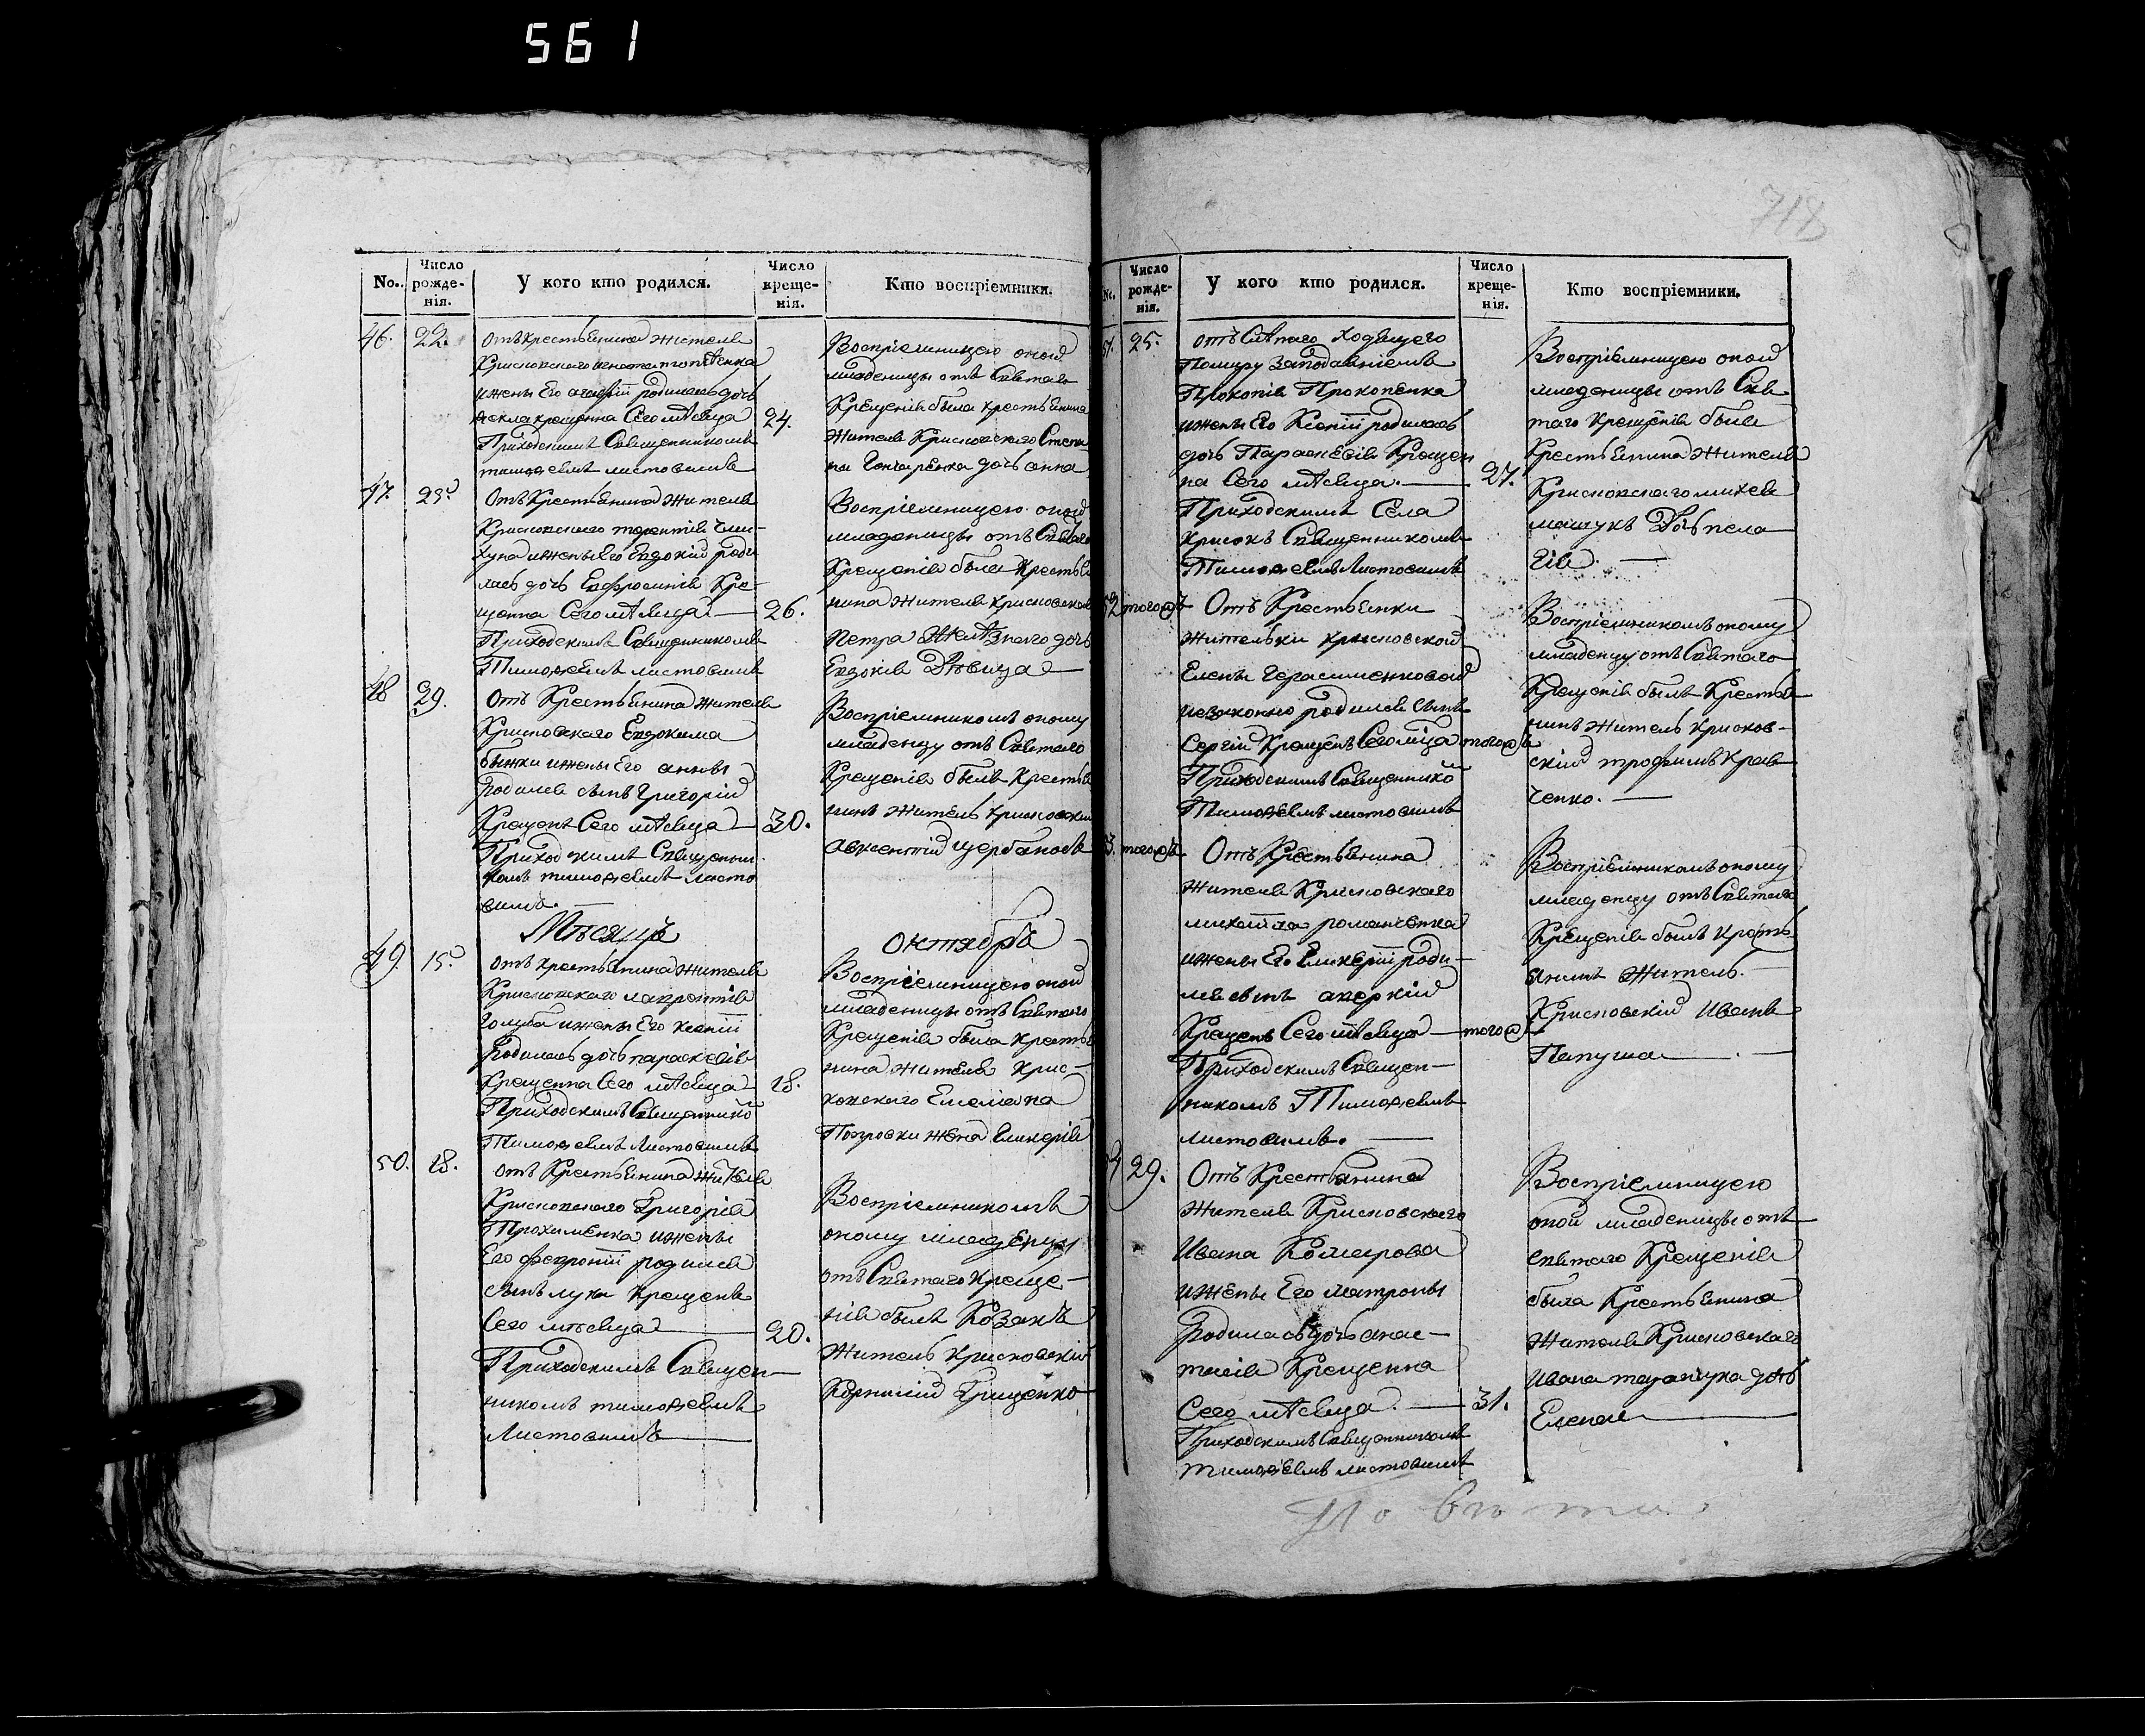 561
718
No.
Число рожде-нія.
У кого кто родился.
Число креще-нія.
Кто воспріемники.
46. 22.
отъ крестьянина жителя
Крисковского
и жены Его родилась дочь
крещенна Сего мѣсяца 24.
Приходскимъ Священникомъ
тимоѳеемъ листовимъ
Воспріемницею оной
младеницы отъ Святаго
Крещенія была крестьянина
жителя Крисковского Степа
на Гончаренка дочь анна
47. 25
Отъ Крестьянина жителя
Крисковского терентія
и жены Его Евдокіи роди
лась дочь Евфросинія Кре-
щенна Сего мѣсяца 26.
Приходскимъ Священникомъ
Тимоѳеемъ листовимъ
Воспріемницею оной
младеницы отъ Святаго
Крещенія была Крестья
нина жителя крисковского
петра дочь
Евдокія Дѣвица
48 29.
Отъ Крестьянина жителя
Крисковского Евдокима
бынки и жены Его анны
Родился сынъ Григорій
Крещенъ Сего мѣсяца 30.
Приходскимъ Священни
комъ тимоѳеемъ листо
вимъ.
Воспріемникомъ оному
младенцу отъ Святаго
Крещенія былъ Крестья
нинъ житель крисковскій
авксентій щербаковъ
Мѣсяцъ октябрь
49. 15.
отъ крестьянина жителя
Крисковского лаврентія
Голуба и жены Его ксеніи
Родилась дочь параскевія
Крещенна Сего мѣсяца 18.
Приходскимъ Священнико
Тимоѳеемъ Листовимъ
Воспріемницею оной
младеницы отъ Святаго
Крещенія была крестья
нина жителя крис-
ковского Емеліяна
Петровки жена Гликерія
50. 18.
отъ Крестьянина жителя
Крисковского Григорія
Трохименка и жены
Его февроніи родился
сынъ лука крещенъ
Сего мѣсяца 20.
Приходскимъ Священ
никомъ тимоѳеемъ
Листовимъ
Воспріемникомъ
оному младенцу
отъ Святаго креще-
нія былъ Козакъ
житель крисковскій
Корнилій Грищенко
No.
Число рожде-нія.
У кого кто родился.
Число креще-нія.
Кто воспріемники.
51. 25.
отъ слѣпаго ходящего
по миру за подаяніемъ
Прокопія Прокопенка
и жены Его Ксеніи родилась
дочь Параскевія Крещен
на Сего мѣсяца. 27.
Приходскимъ Села
крисокъ Священникомъ
Тимоѳеемъ Листовимъ
Воспріемницею оной
младеницы отъ Свя
таго крещенія была
Крестьянина жителя
Крисковскаго михея
дочь пела
гія.
52 того ѳ
Отъ Крестьянки
жительки крисковской
Елены Герасименковой
незаконно родился сынъ
Сергій Крещенъ Сего мѣсца того ѳ
Приходскимъ Священнико
Тимоѳеемъ листовимъ
Воспріемникомъ оному
младенцу отъ Святаго
Крещенія былъ Крестья
нинъ житель крисков-
скій трофимъ Крав
ченко.
3. того ѳ
Отъ Крестьянина
жителя Крисковского
михаила романченка
и жены Его Гликеріи роди-
лся сынъ аверкій
Крещенъ Сего мѣсяца того ѳ
Приходскимъ Священ-
никомъ Тимоѳеемъ
листовимъ.
Воспріемникомъ оному
младенцу отъ Святаго
Крещенія былъ кресть
янинъ житель.
Крисковскій Иванъ
Папуша
29.
Отъ Крестьянина
жителя Крисковского
Ивана Комарова
и жены Его матроны
Родилась дочь анас-
тасія Крещенна
Сего мѣсяца. 31.
Приходскимъ Священникомъ
тимоѳеемъ листовимъ
Воспріемницею
оной младеницы отъ
святаго Крещенія
была Крестьянина
жителя Крисковскаго
ивана дочь
Елена